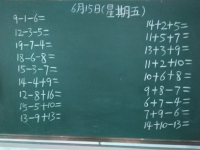 6月15日(星期五)
9-1-6=
12-3-5=
19-7-4=
18-6-8=
15-3-7=
14-4+9=
12-8+16=
15-5+10=
13-9+13=
14+2+5=
11+5+7=
13+3+9=
11+2+10=
10+6+8=
9+8-7=
6+7-4=
7+9-6=
14+10-13=